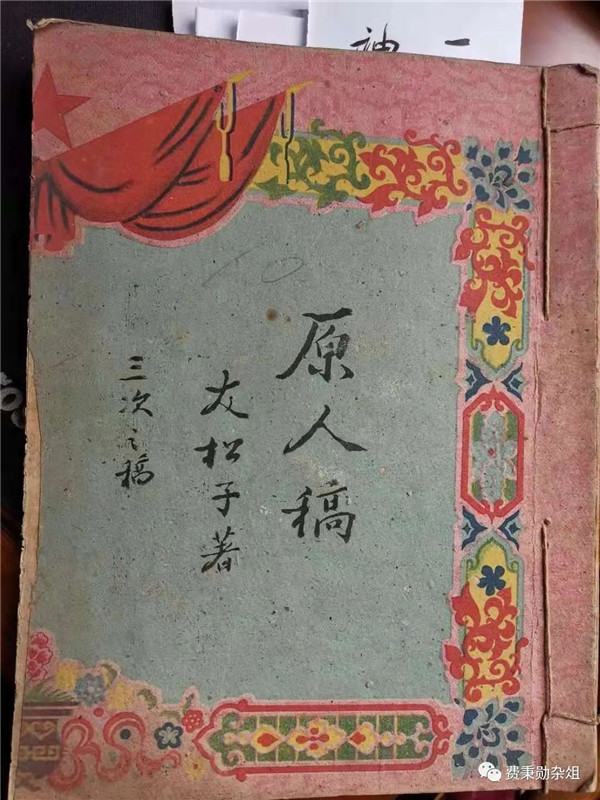 神一
原人稿
友松子著
三次之稿
费秉勋杂俎